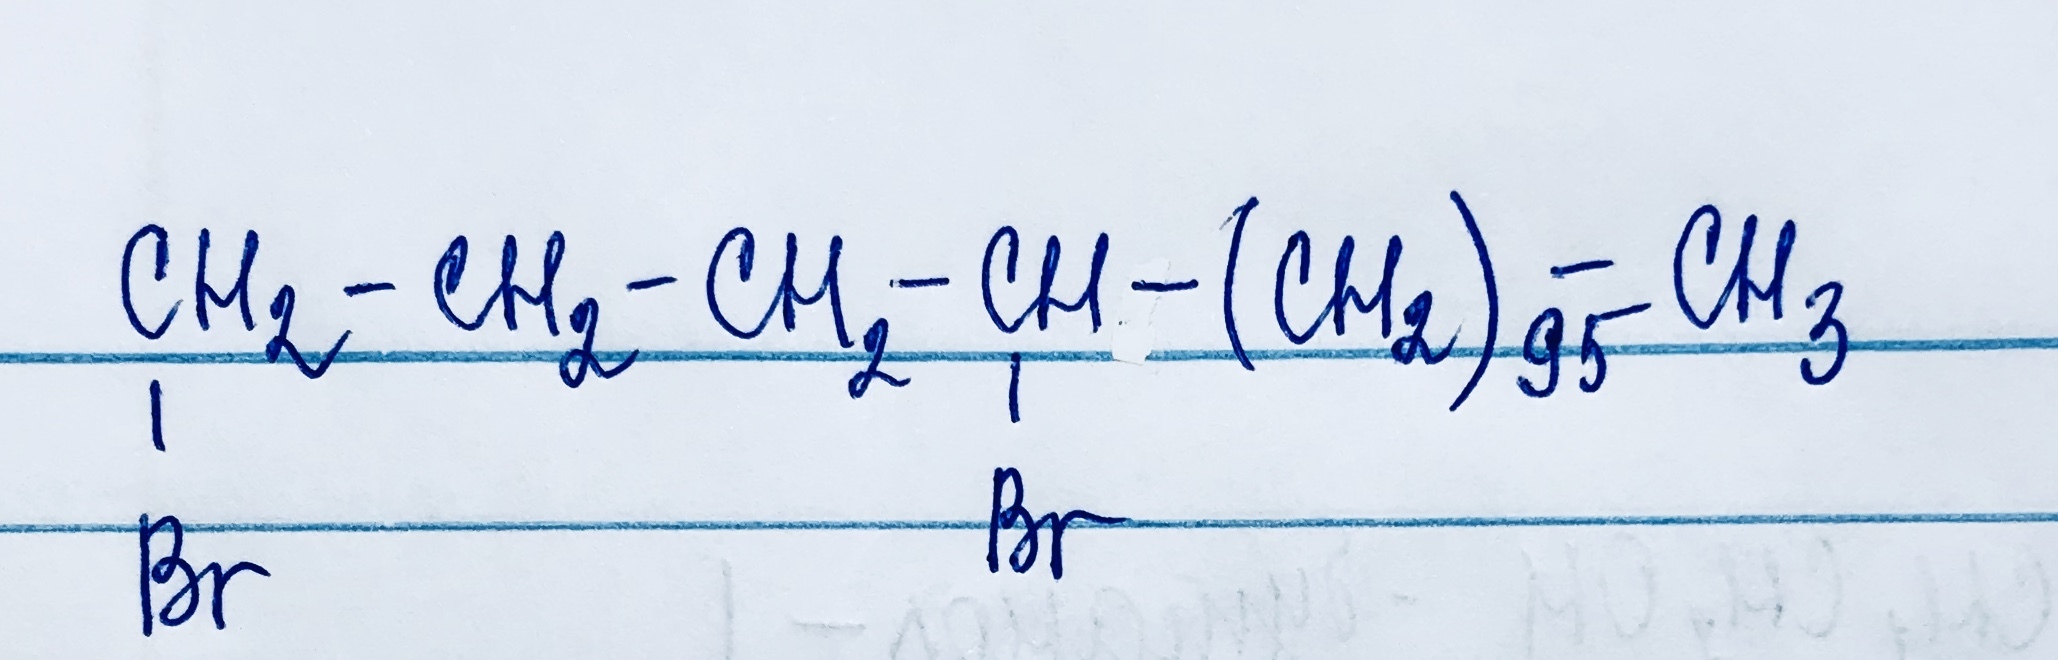 CH2-CH2-CH2-CH-(CH2)95-CH3
Br Br